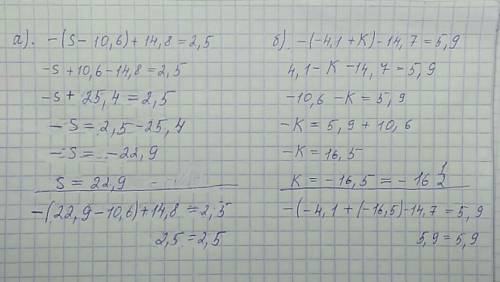 а). -(S-10,6)+14,8=2,5
-S+10,6-14,8=2,5
-S+25,4=2,5
-S=2,5-25,4
-S=-22,9
S=22,9
-(22,9-10,6)+14,8=2,5
2,5=2,5
б). -(-4,1+K)-14,7=5,9
4,1-K-14,7=5,9
-10,6-K=5,9
-K=5,9+10,6
-K=16,5
K=-16,5=-16 1/2
-(-4,1+(-16,5)-14,7=5,9
5,9=5,9